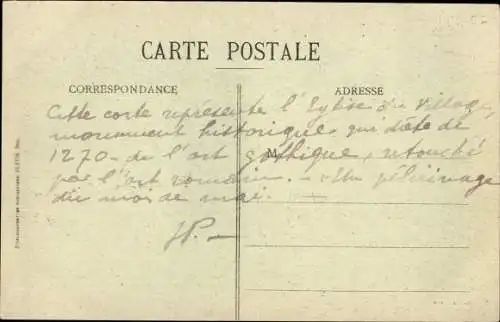 CARTE POSTALE
CORRESPONDANCE
ADRESSE
Cette carte représente l'Eglise du Village,
monument historique, qui date de
M
1270 - de l'art gothique, retouché
par l'art romain. - Un pélérinage
du mois de mai.
JP. -